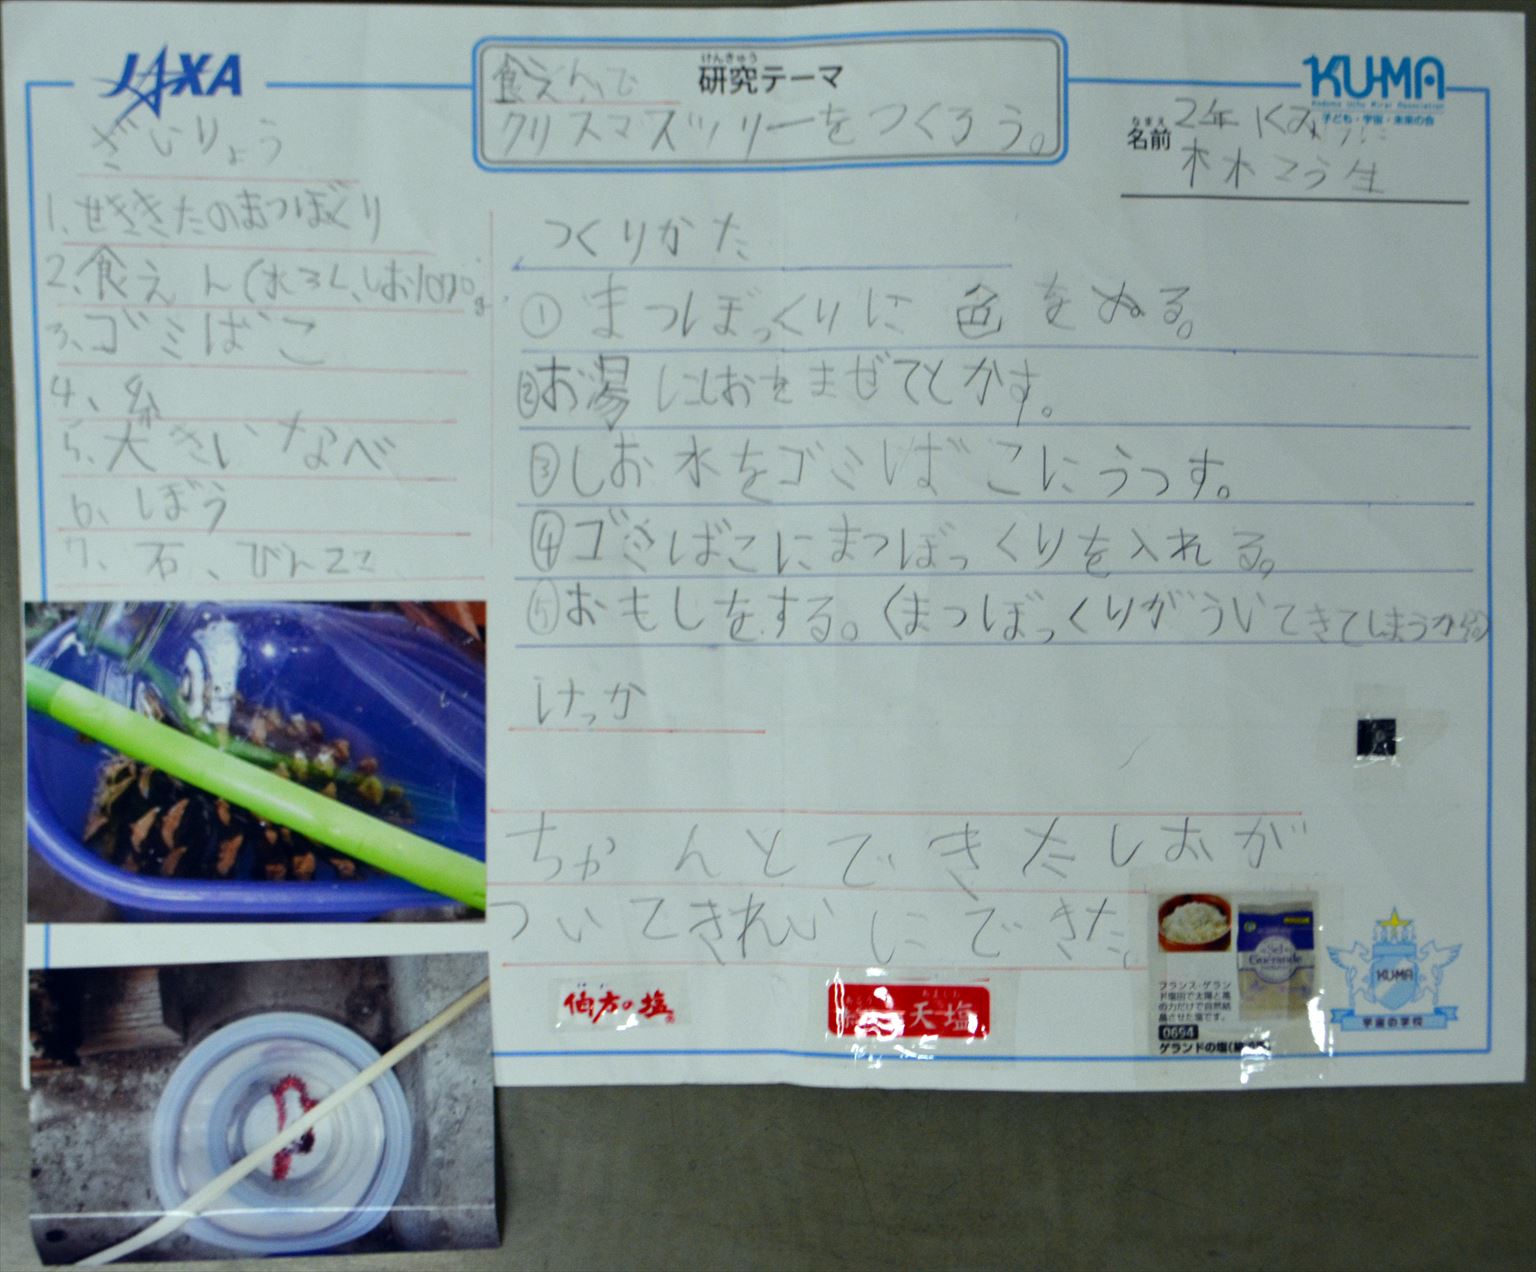 JAXA
けんきゅう
研究テーマ
食えんで
クリスマスツリーをつくろう。
KU-MA
Kodomo Uchu Mirai Association
子ども・宇宙・未来の会
なまえ
名前
2年
木木こう生
ざいりょう
1、せききたのまつぼくり
2、食えん(水3L、しお1070g
3、ゴミばこ
4、糸
5、大きいなべ
6、ぼう
7、石、びん
つくりかた
①まつぼっくりに色をぬる。
②お湯にしおをまぜてとかす。
③しお水をゴミばこにうつす。
④ゴミばこにまつぼっくりを入れる。
⑤おもしをする。(まつぼっくりがういてきてしまうから)
けっか
ちゃんとできたしおが
ついてきれいにできた。
伯方の塩
天塩
Sel
Guérande
フランス・ゲラン
ド塩田で太陽と風
の力だけで自然結
晶させた塩です。
0694
ゲランドの塩
KUMA
宇宙の学校